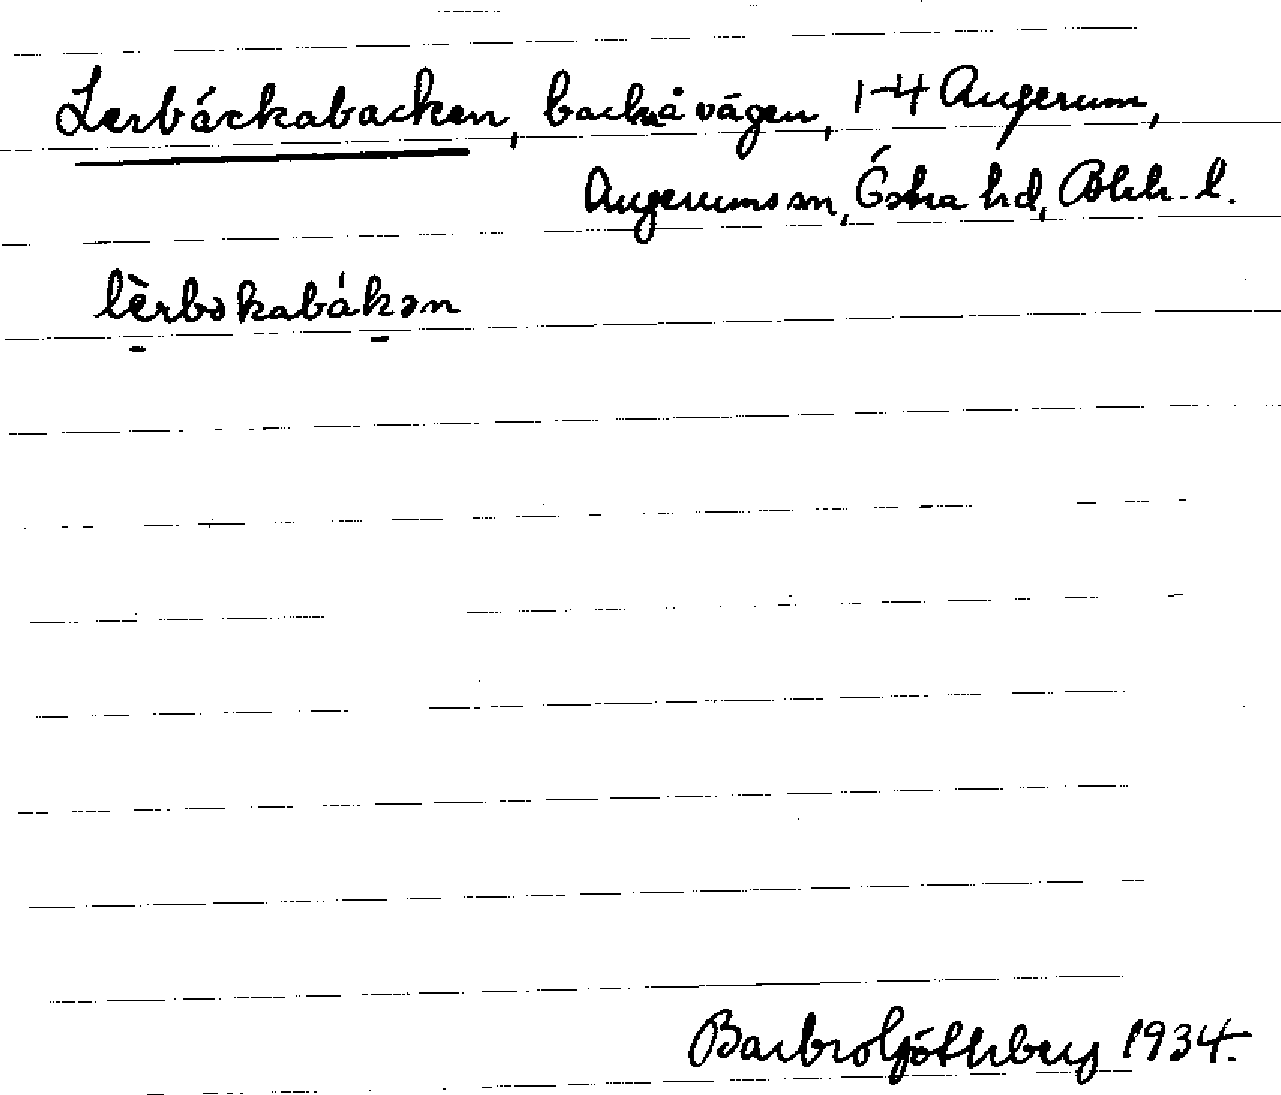 Lerbäckabacken, backe å vägen, 1-4 Augerum,
Augerums sn, Östra hd, Blek. l.
lèrbəkabákən
Barbro Götherberg 1934.